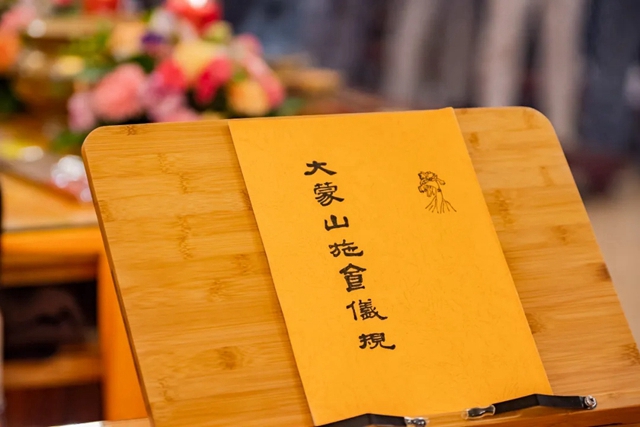 大蒙山施食儀規